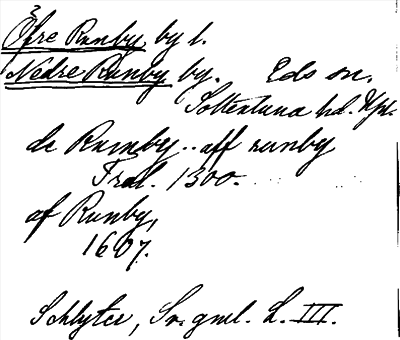 Öfre Runby by l.
Nedre Runby by. Eds sn.
Sollentuna hd. Upl.
de Runby.. aff runby
Trol. 1300.
af Runby,
1607.
Schlyter, Sv. gml. L. III.